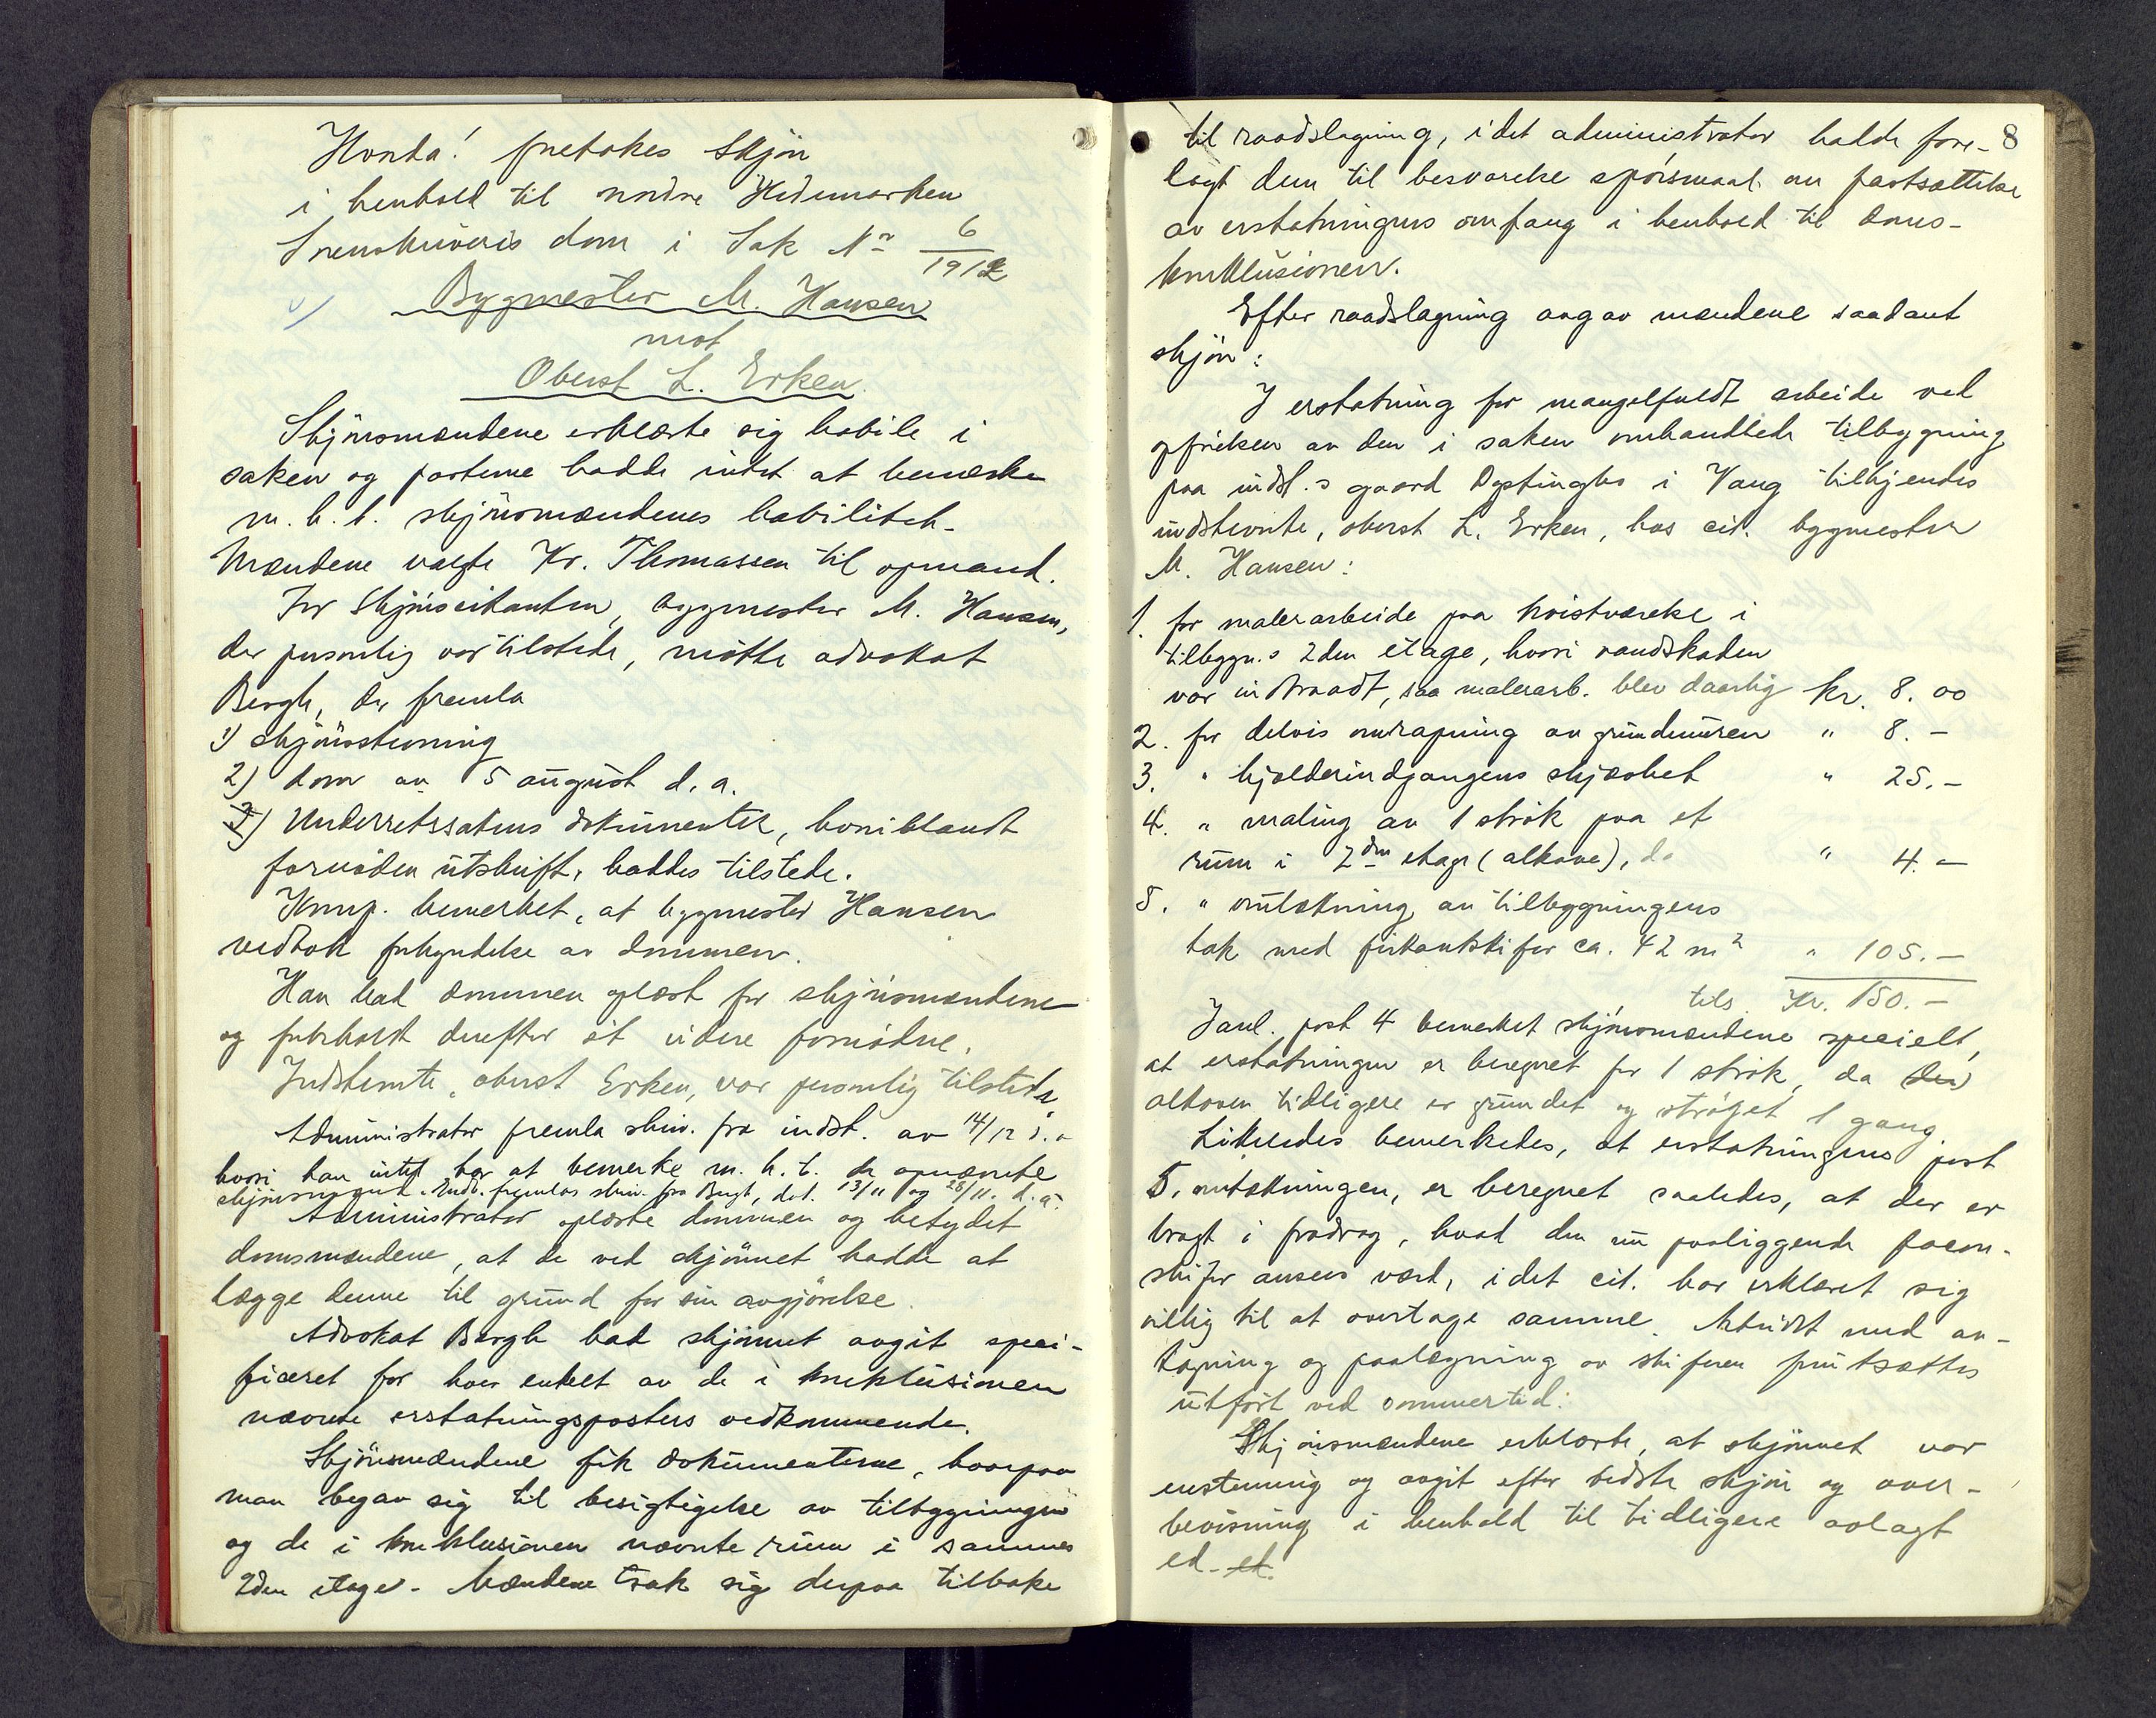 Hvorda! foretokes Skjøn
i henhold til nordre Hedemarken
Sorenskriveris dom i Sak No 6/1912
Bygmester M. Hansen
mot
Oberst L. Erken.
Skjønsmændene erklærte sig habile i
saken og parterne hadde intet at bemærke
m. h. t. skjønsmændenes habilitet.
Mændene valgte Kr. Thomassen til opmand.
For Skjønscitanten, bygmester M. Hansen,
der personlig var tilstede, møtte advokat
Bergh, der fremla
1) skjønsstevning
2) dom av 5 august d. a.
3) Underretssakens dokumenter, hvoriblandt
fornøden utskrift, haddes tilstede.
Komp. bemerket, at bygmester Hansen
vedtok forkyndelse av dommen.
Han bad dommen oplæst for skjønsmændene
og forbeholdt derefter at videre fornødne.
Indstevnte, oberst Erken, var personlig tilstede.
Administrator fremla skriv. fra indst. av 14/12 d. a
hvori han intet har at bemerke m. h. t. de opnævnte
skjønsmænd. Endv. fremlas skriv. fra Bergh, dat. 13/11 og 28/11. d. a.
Administrator oplæste dommen og betydet
domsmændene, at de ved skjønnet hadde at
lægge denne til grund for sin avgjørelse.
Advokat Bergh bad skjønnet avgit speci-
ficeret for hver enkelt av de i konklusionen
nævnte erstatningsposters vedkommende.
Skjønsmændene fik dokumenterne, hvorpaa
man begav sig til besigtigelse av tilbygningen
og de i konklusionen nævnte rum i sammes
2den etage. Mændene trak sig derpaa tilbake
8
til raadslagning, idet administrator hadde fore-
lagt dem til besvarelse spørsmaal om fastsættelse
av erstatningens omfang i henhold til doms-
konklusionen.
Efter raadslagning avgav mændene saadant
skjøn:
I erstatning for mangelfuldt arbeide ved
opførelsen av den i saken omhandlede tilbygning
paa indst.s gaard Dystingbo i Vang tilkjendes
indstevnte, oberst L. Erken, hos cit. bygmester
M. Hansen:
1. for malerarbeide paa kvistværelse i
tilbygn.s 2den etage, hvori vandskaden
var indtraadt, saa malerarb. blev daarlig kr. 8.00
2. for delvis omrapning av grundmuren " 8.-
3. " kjælderindgangens skjævhet " 25.-
4. " maling av 1 strøk paa et
rum i 2den etage (alkove), da " 4.-
5. " omtækning av tilbygningens
tak med firkantskifer ca. 42 m2 " 105.-
tils. Kr. 150.-
I anl. post 4 bemerket skjønsmændene specielt,
at erstatningen er beregnet for 1 strøk, da den
alkoven tidligere er grundet og strøket 1 gang.
Likeledes bemerkedes, at erstatningens post
5, omtækningen, er beregnet saaledes, at der er
bragt i fradrag, hvad den nu paaliggende facon-
skifer ansees værd, idet cit. har erklæret sig
villig til at overtage samme. Arbeidet med av-
tagning og paalægning av skiferen forutsættes
utført ved sommertid.
Skjønsmændene erklærte, at skjønnet var
enstemmig og avgit efter bedste skjøn og over-
bevisning i henhold til tidligere avlagt
ed. et.